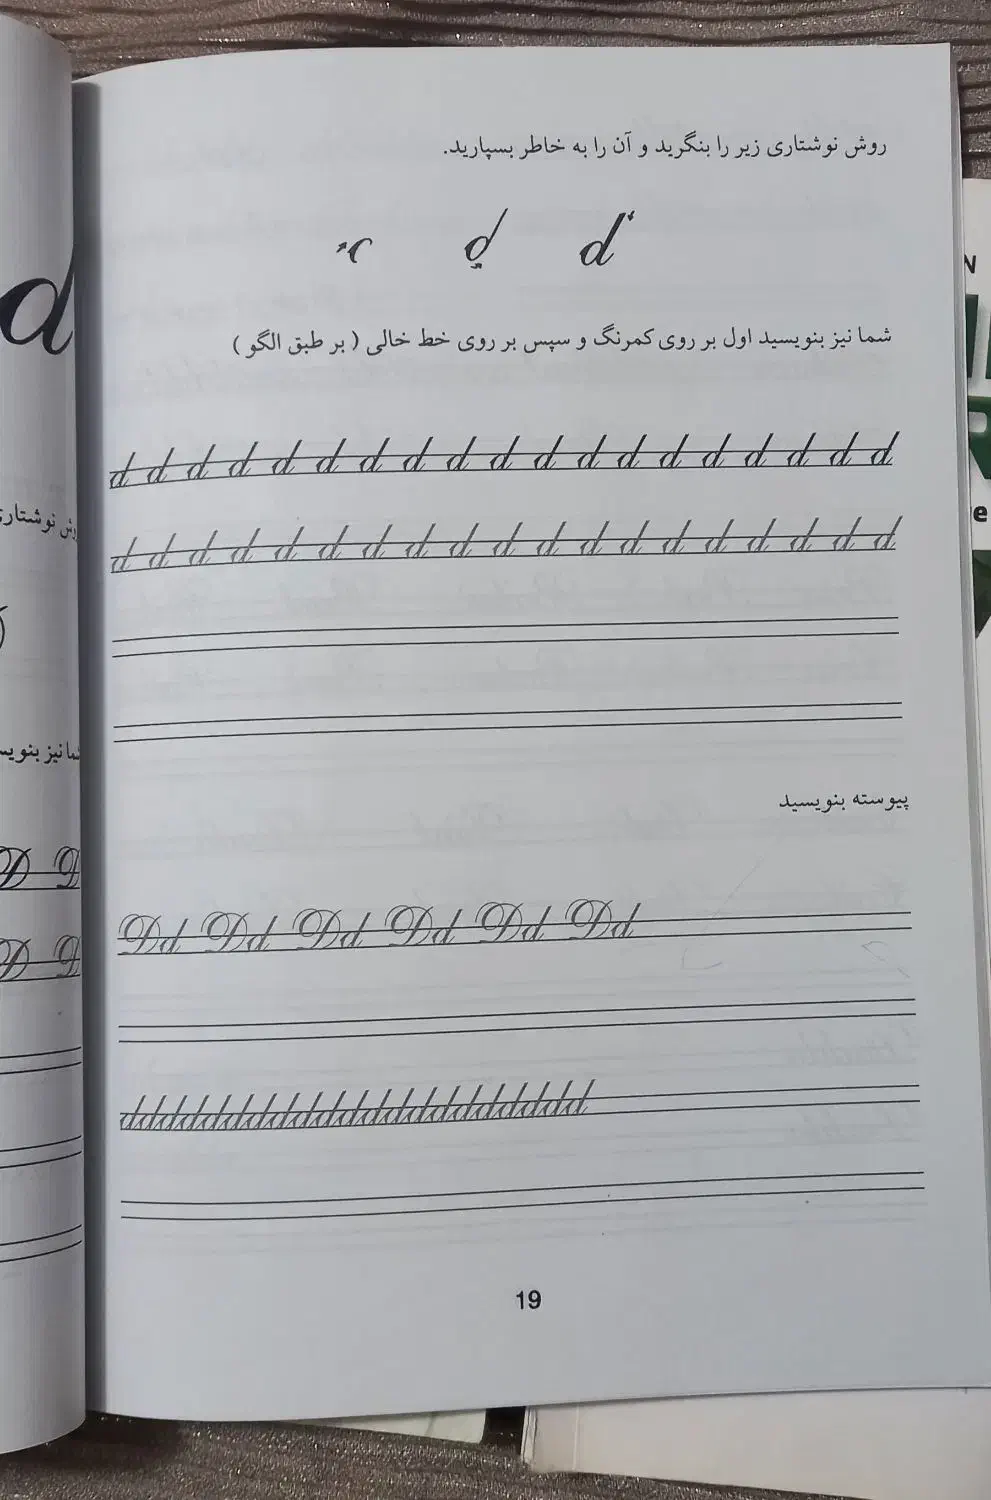 روش نوشتاری زیر را بنگرید و آن را به خاطر بسپارید.
c d d
شما نیز بنویسید اول بر روی کمرنگ و سپس بر روی خط خالی ( بر طبق الگو )
d d d d d d d d d d d d d d d d d d d
d d d d d d d d d d d d d d d d d d d
پیوسته بنویسید
Dd Dd Dd Dd Dd Dd
ddddddddddddddddddddddd
19
d
نوشتاری
نیز
D D
D D
N
e